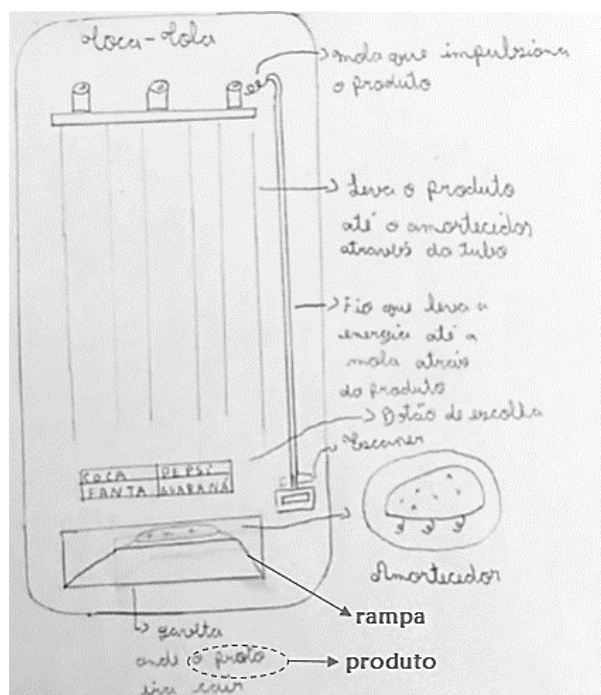 Toca-Tola
mola que impulsiona
o produto
Leva o produto
até o amortecidor
através do tubo
Fio que leva a
energia até a
mola atrás
do produto
Botão de escolha
Escaner
COCA PEPSI
FANTA GUARANÁ
Amortecedor
rampa
gavita
onde o proto produto
irá cair